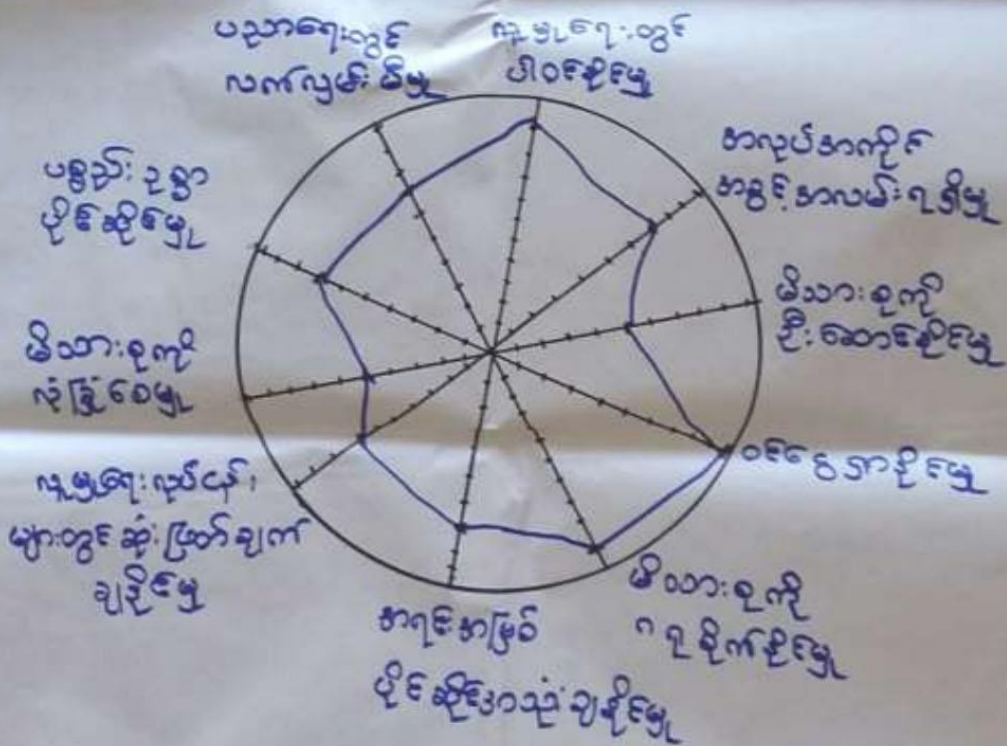 ပညာရေးတွင်
လက်လှမ်းမီမှု
လူမှုရေးတွင်
ပါဝင်နိုင်မှု
အလုပ်အကိုင်
အခွင့်အလမ်းရရှိမှု
မိသားစုကို
ဦးဆောင်နိုင်မှု
ဝင်ငွေရှာနိုင်မှု
မိသားစုကို
ဂရုစိုက်နိုင်မှု
အရင်းအမြစ်
ပိုင်ဆိုင်အသုံးချနိုင်မှု
လူမှုရေးလုပ်ငန်း
များတွင် ဆုံးဖြတ်ချက်
ချနိုင်မှု
မိသားစုကို
လုံခြုံစေမှု
ပစ္စည်းဥစ္စာ
ပိုင်ဆိုင်မှု